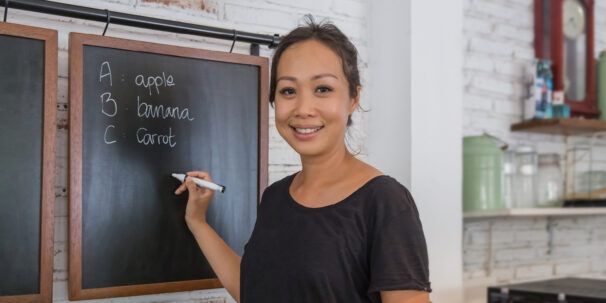 A : apple
B : banana
C : Carrot